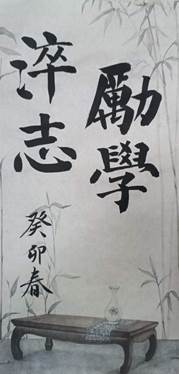 勵學
淬志
癸卯春